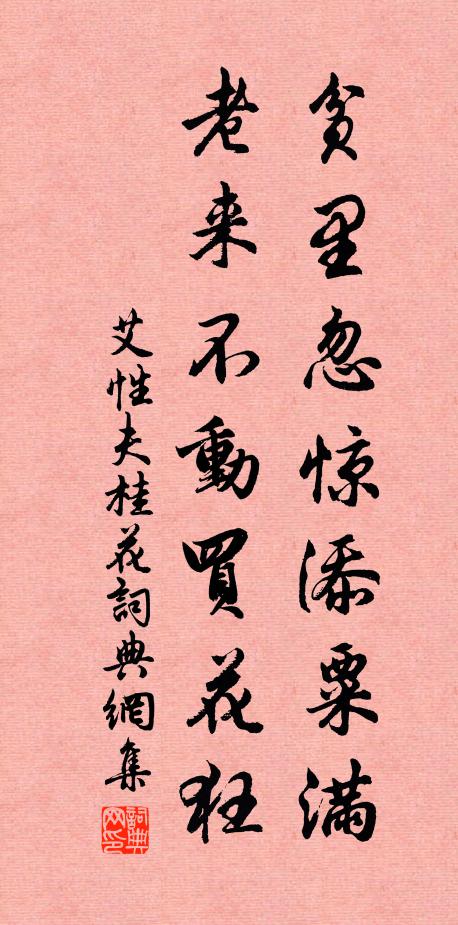 贫里忽惊添粟满
老来不動買花狂
艾性夫桂花詞典網集
詞典网印